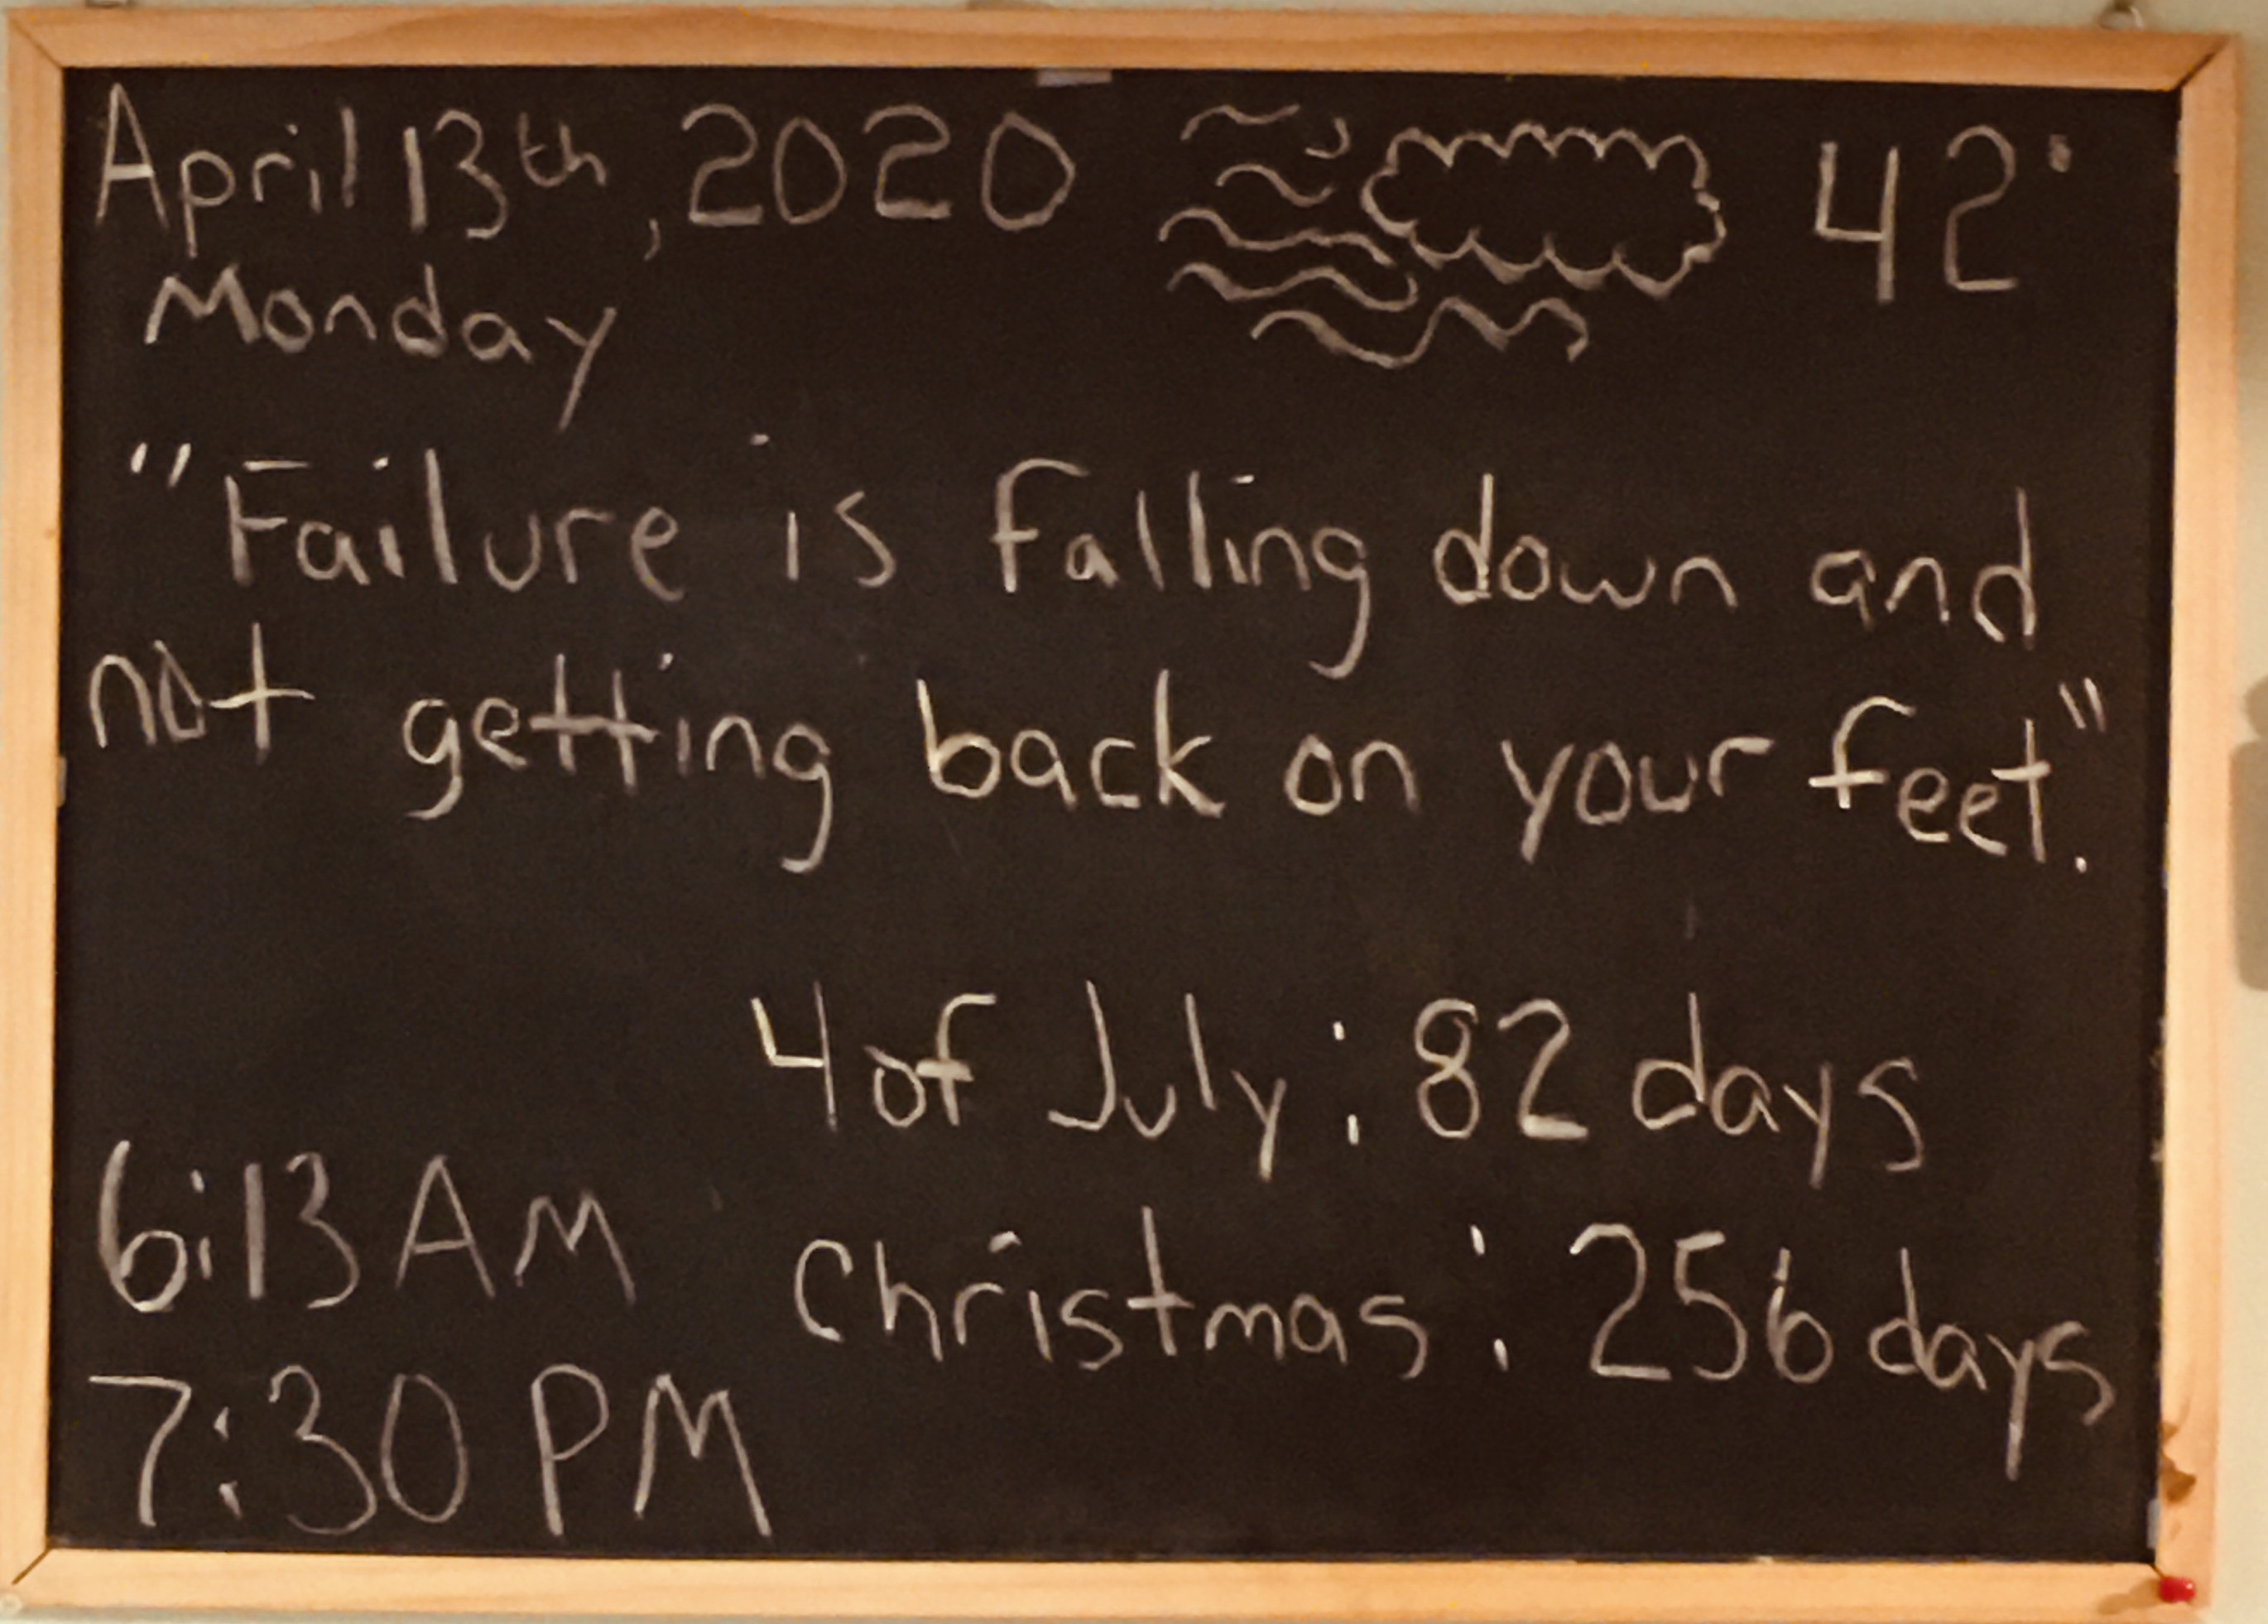 April 13th, 2020 42°
Monday
"Failure is falling down and
not getting back on your feet."
4 of July: 82 days
6:13 AM
Christmas: 256 days
7:30 PM